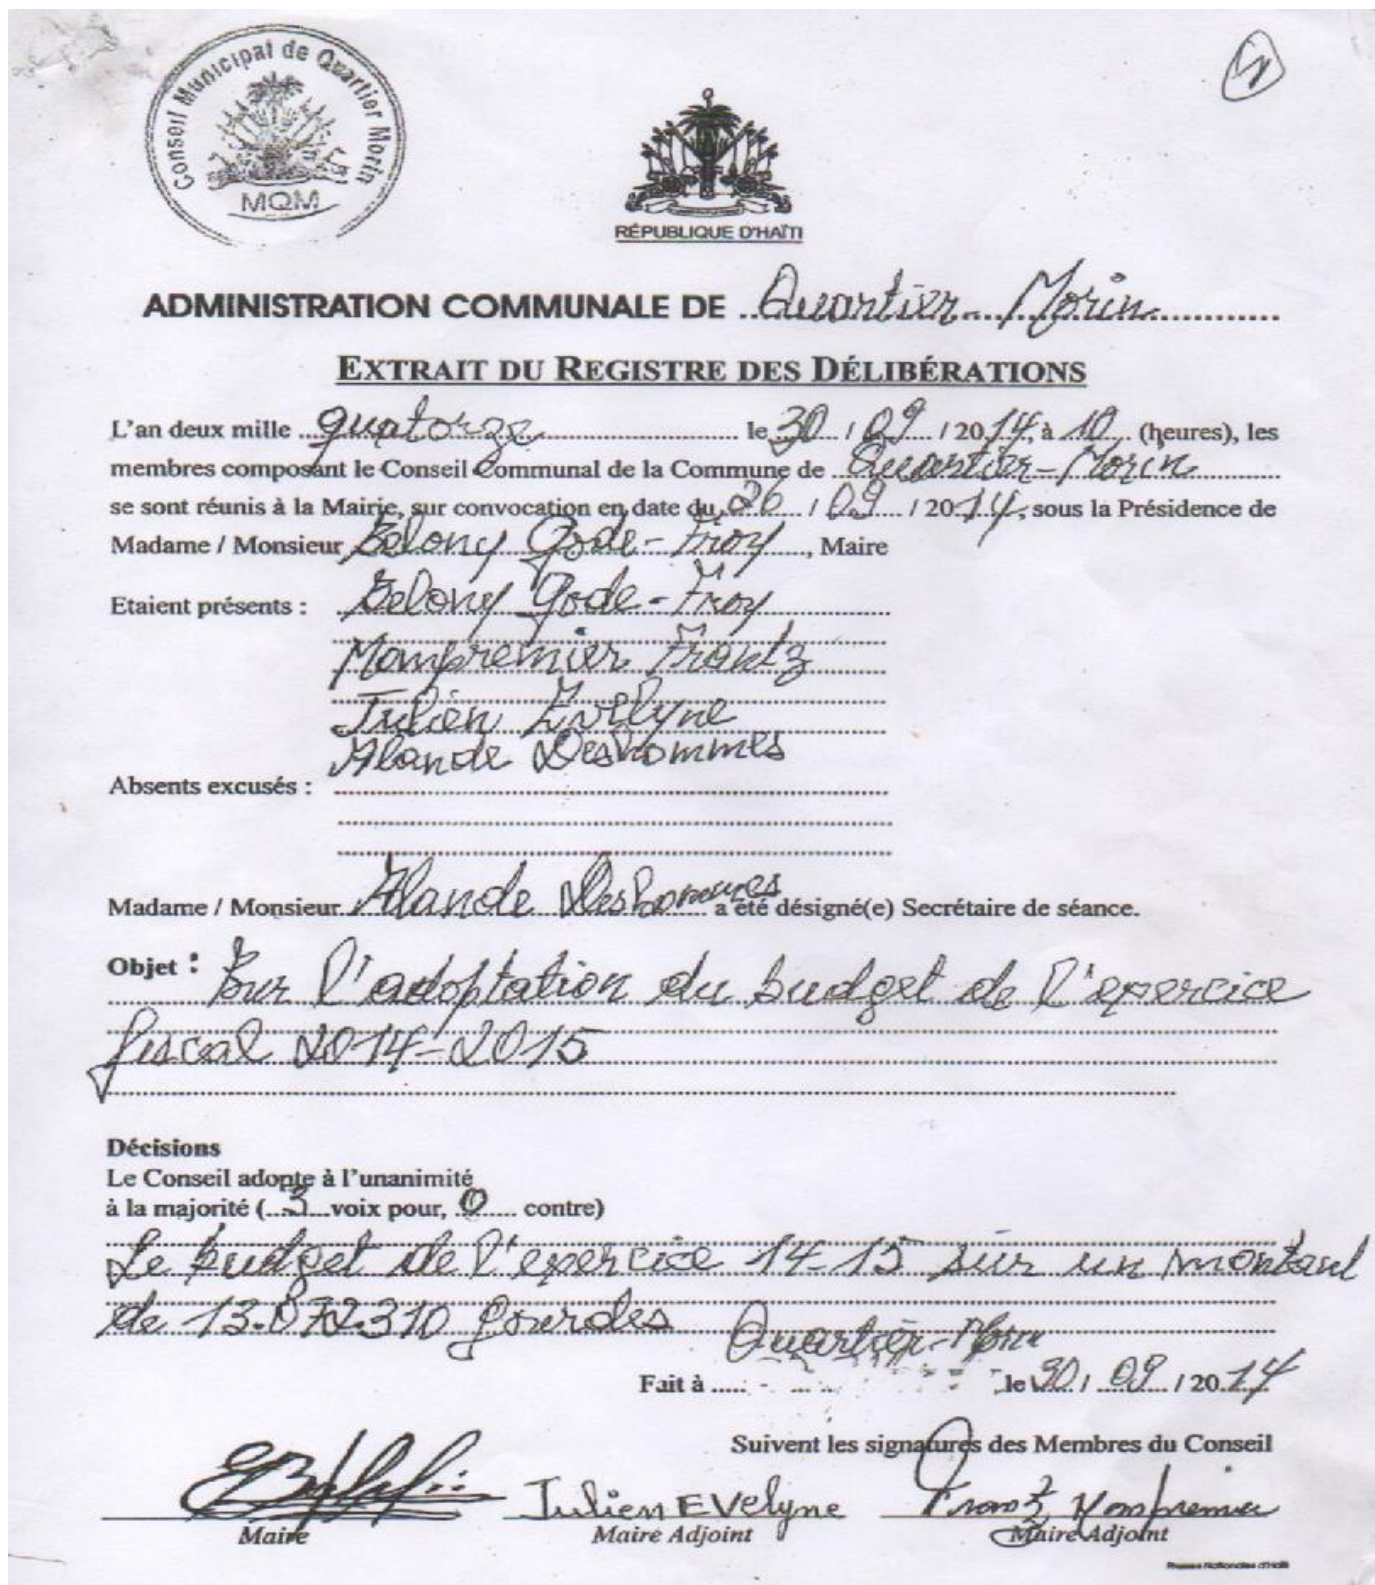 Conseil Municipal de Quartier Morin
MQM
RÉPUBLIQUE D'HAÏTI
ADMINISTRATION COMMUNALE DE Quartier-Morin
EXTRAIT DU REGISTRE DES DÉLIBÉRATIONS
L'an deux mille quatorze le 30 / 09 / 2014, à 10 (heures), les
membres composant le Conseil Communal de la Commune de Quartier-Morin
se sont réunis à la Mairie, sur convocation en date du 26 / 09 / 2014, sous la Présidence de
Madame / Monsieur Belony Gode-Froy, Maire
Etaient présents : Belony Gode-Froy
Monpremier Frantz
Julien Evelyne
Alande Deshommes
Absents excusés :
Madame / Monsieur Alande Deshommes a été désigné(e) Secrétaire de séance.
Objet : Sur l'adoptation du budget de l'exercice
fiscal 2014-2015
Décisions
Le Conseil adopte à l'unanimité
à la majorité (3 voix pour, 0 contre)
Le budget de l'exercice 14-15 sur un montant
de 13.072.310 gourdes
Quartier-Morin
Fait à le 30 / 09 / 2014
Suivent les signatures des Membres du Conseil
Julien EVelyne Frantz Monpremier
Maire Maire Adjoint Maire Adjoint
Presses Nationales d'Haïti